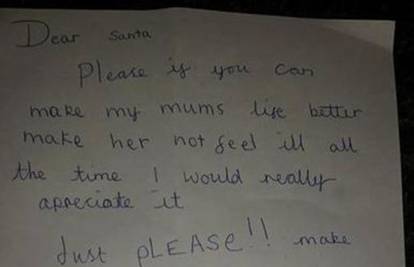 Dear Santa
Please if you can
make my mums life better
make her not feel ill all
the time I would really
appreciate it
Just pLEASE!! make